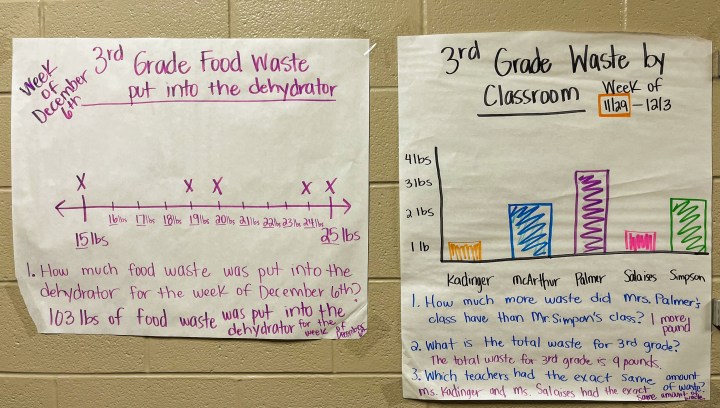 Week
of
December
6th
3rd Grade Food Waste
put into the dehydrator
X X X X X
16lbs 17lbs 18lbs 19lbs 20lbs 21lbs 22lbs 23lbs 24lbs
15lbs 25lbs
1. How much food waste was put into the
dehydrator for the week of December 6th?
103 lbs of food waste was put into the
dehydrator for the
week of
December
3rd Grade Waste by
Classroom
Week of
11/29 - 12/3
4lbs
3lbs
2 lbs
1 lb
Kadinger McArthur Palmer Salaises Simpson
1. How much more waste did Mrs. Palmer's
class have than Mr. Simpson's class? 1 more
pound
2. What is the total waste for 3rd grade?
The total waste for 3rd grade is 9 pounds.
3. Which teachers had the exact same amount
of waste?
Ms. Kadinger and Ms. Salaises had the exact
same amount of
waste.